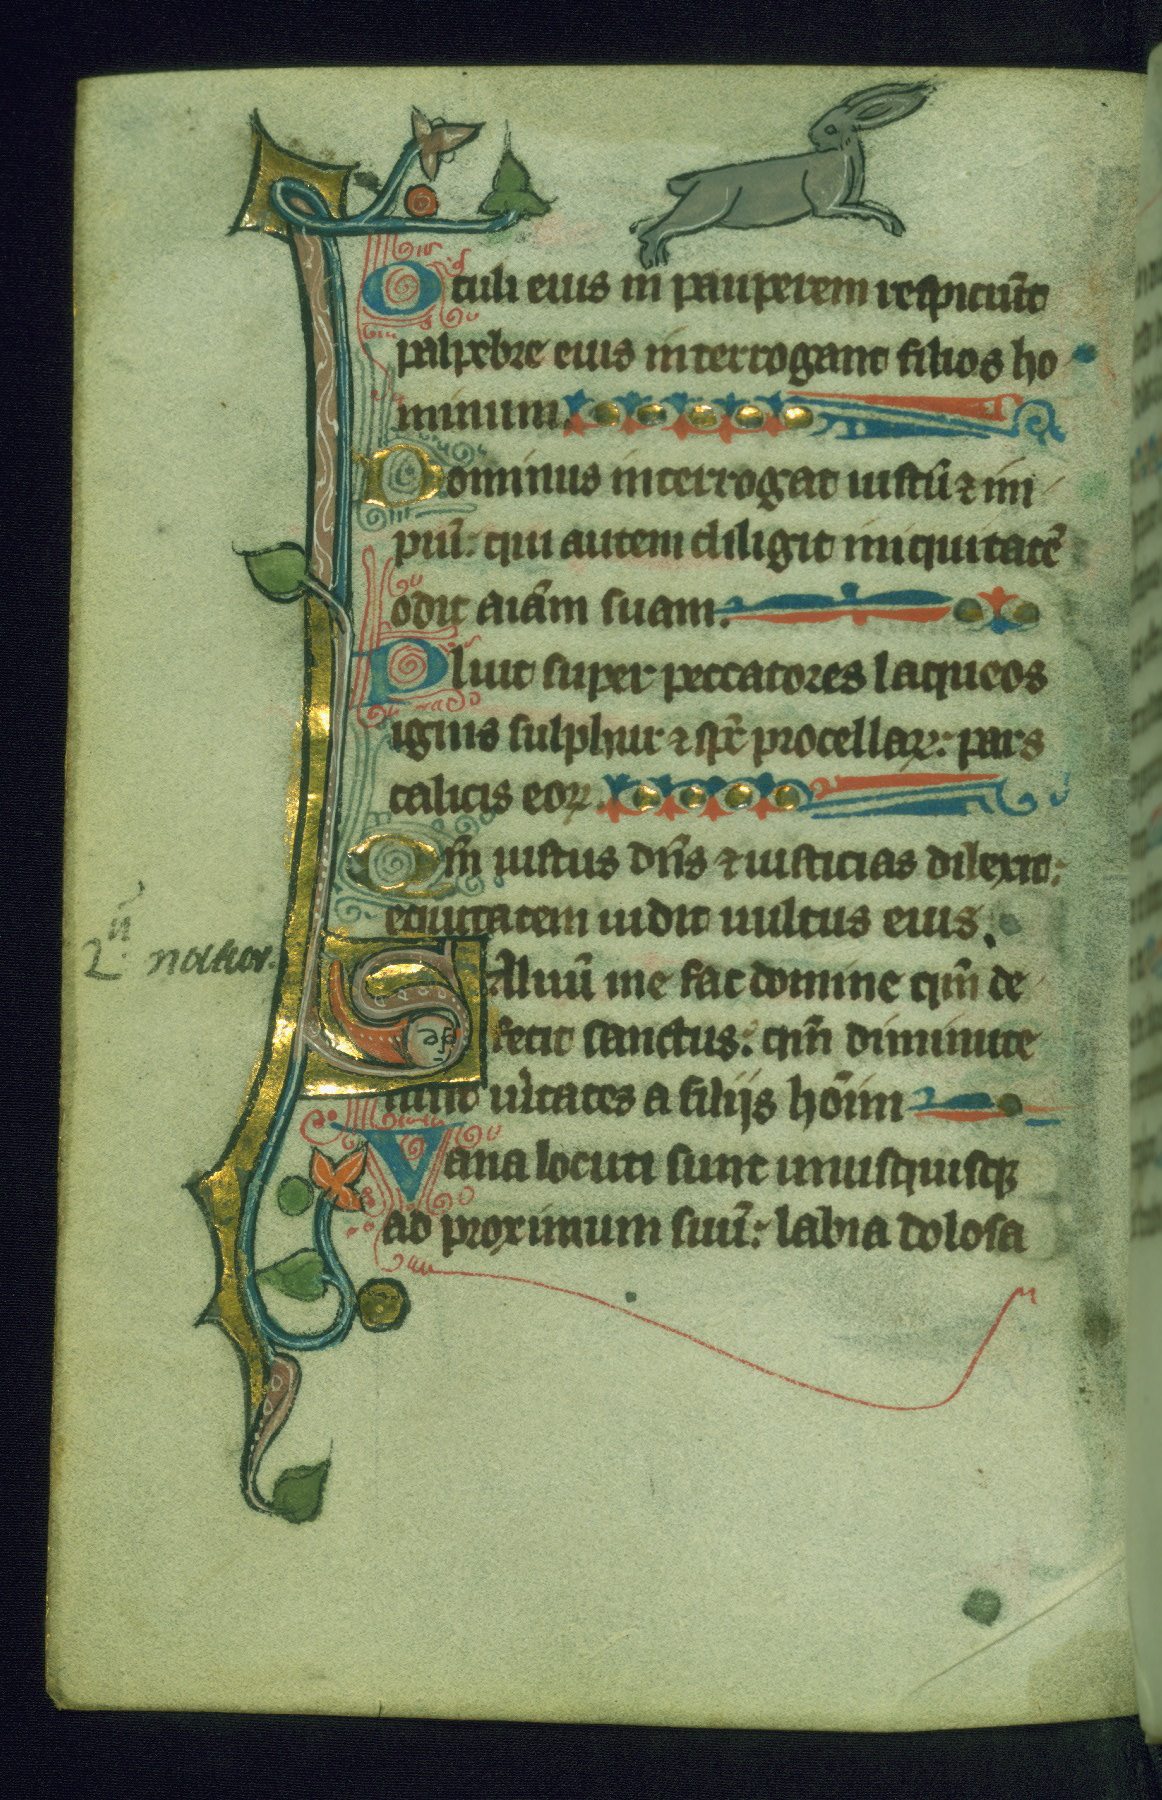 Oculi eius in pauperem respiciūt
palpebre eius interrogant filios ho
minum.
Dominus interrogat iustū ⁊ im
piū: qui autem diligit iniquitatē
odit aīam suam.
Pluit super peccatores laqueos
ignis sulphur ⁊ spc̄ procellaꝝ: pars
calicis eoꝝ.
Qm̄ iustus dn̄s ⁊ iusticias dilexit:
equitatem uidit uultus eius.
Saluū me fac domine qm̄ de
fecit sanctus: qm̄ diminute
sunt ūitates a filijs hōim
Vana locuti sunt unusquisqꝫ
ad proximum suū: labia dolosa